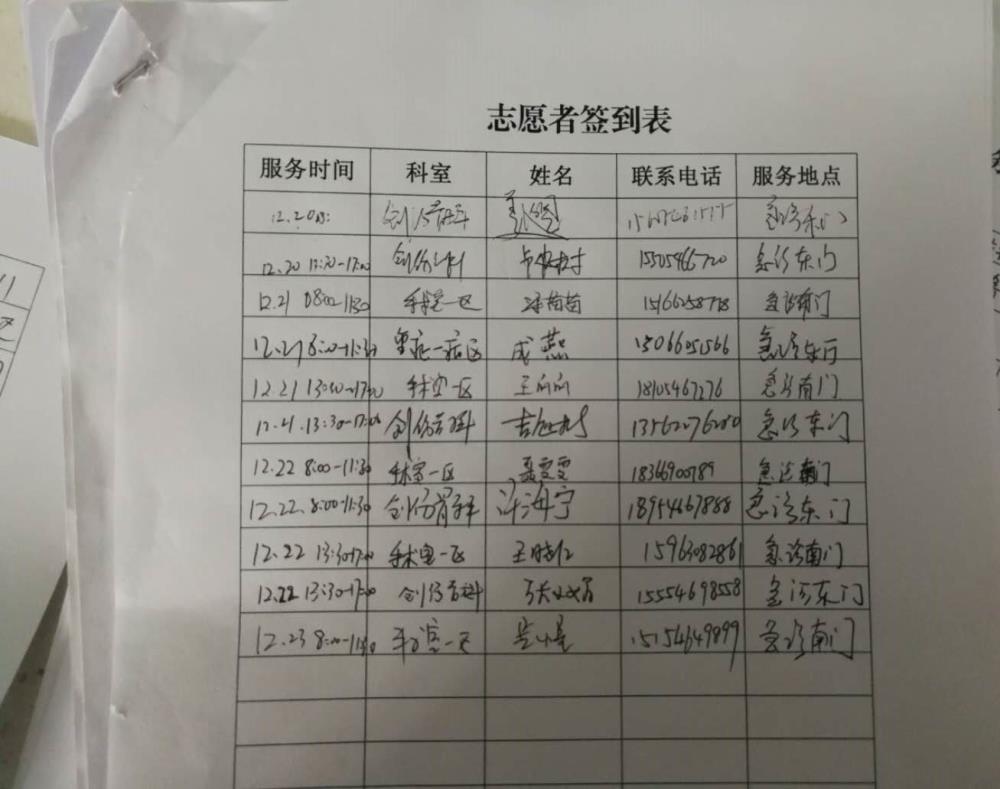 志愿者签到表
服务时间 科室 姓名 联系电话 服务地点
12.20 创伤骨科 急诊东门
12.20 13:30-17:00 创伤骨科 15305466720 急诊东门
12.21 08:00-11:30 手术室一区 急诊南门
12.21 8:00-11:30 重症一病区 成燕 急诊东门
12.21 13:30-17:00 手术室一区 王丽丽 18105467276 急诊南门
12.21 13:30-17:00 创伤骨科 13562076200 急诊东门
12.22 8:00-11:30 手术室一区 聂雯雯 18366900789 急诊南门
12.22 8:00-11:30 创伤骨科 许海宁 18954667888 急诊东门
12.22 13:30-17:00 手术室一区 王晓红 15963082861 急诊南门
12.22 13:30-17:00 创伤骨科 15554698558 急诊东门
12.23 8:00-11:30 手术室一区 15154649899 急诊南门